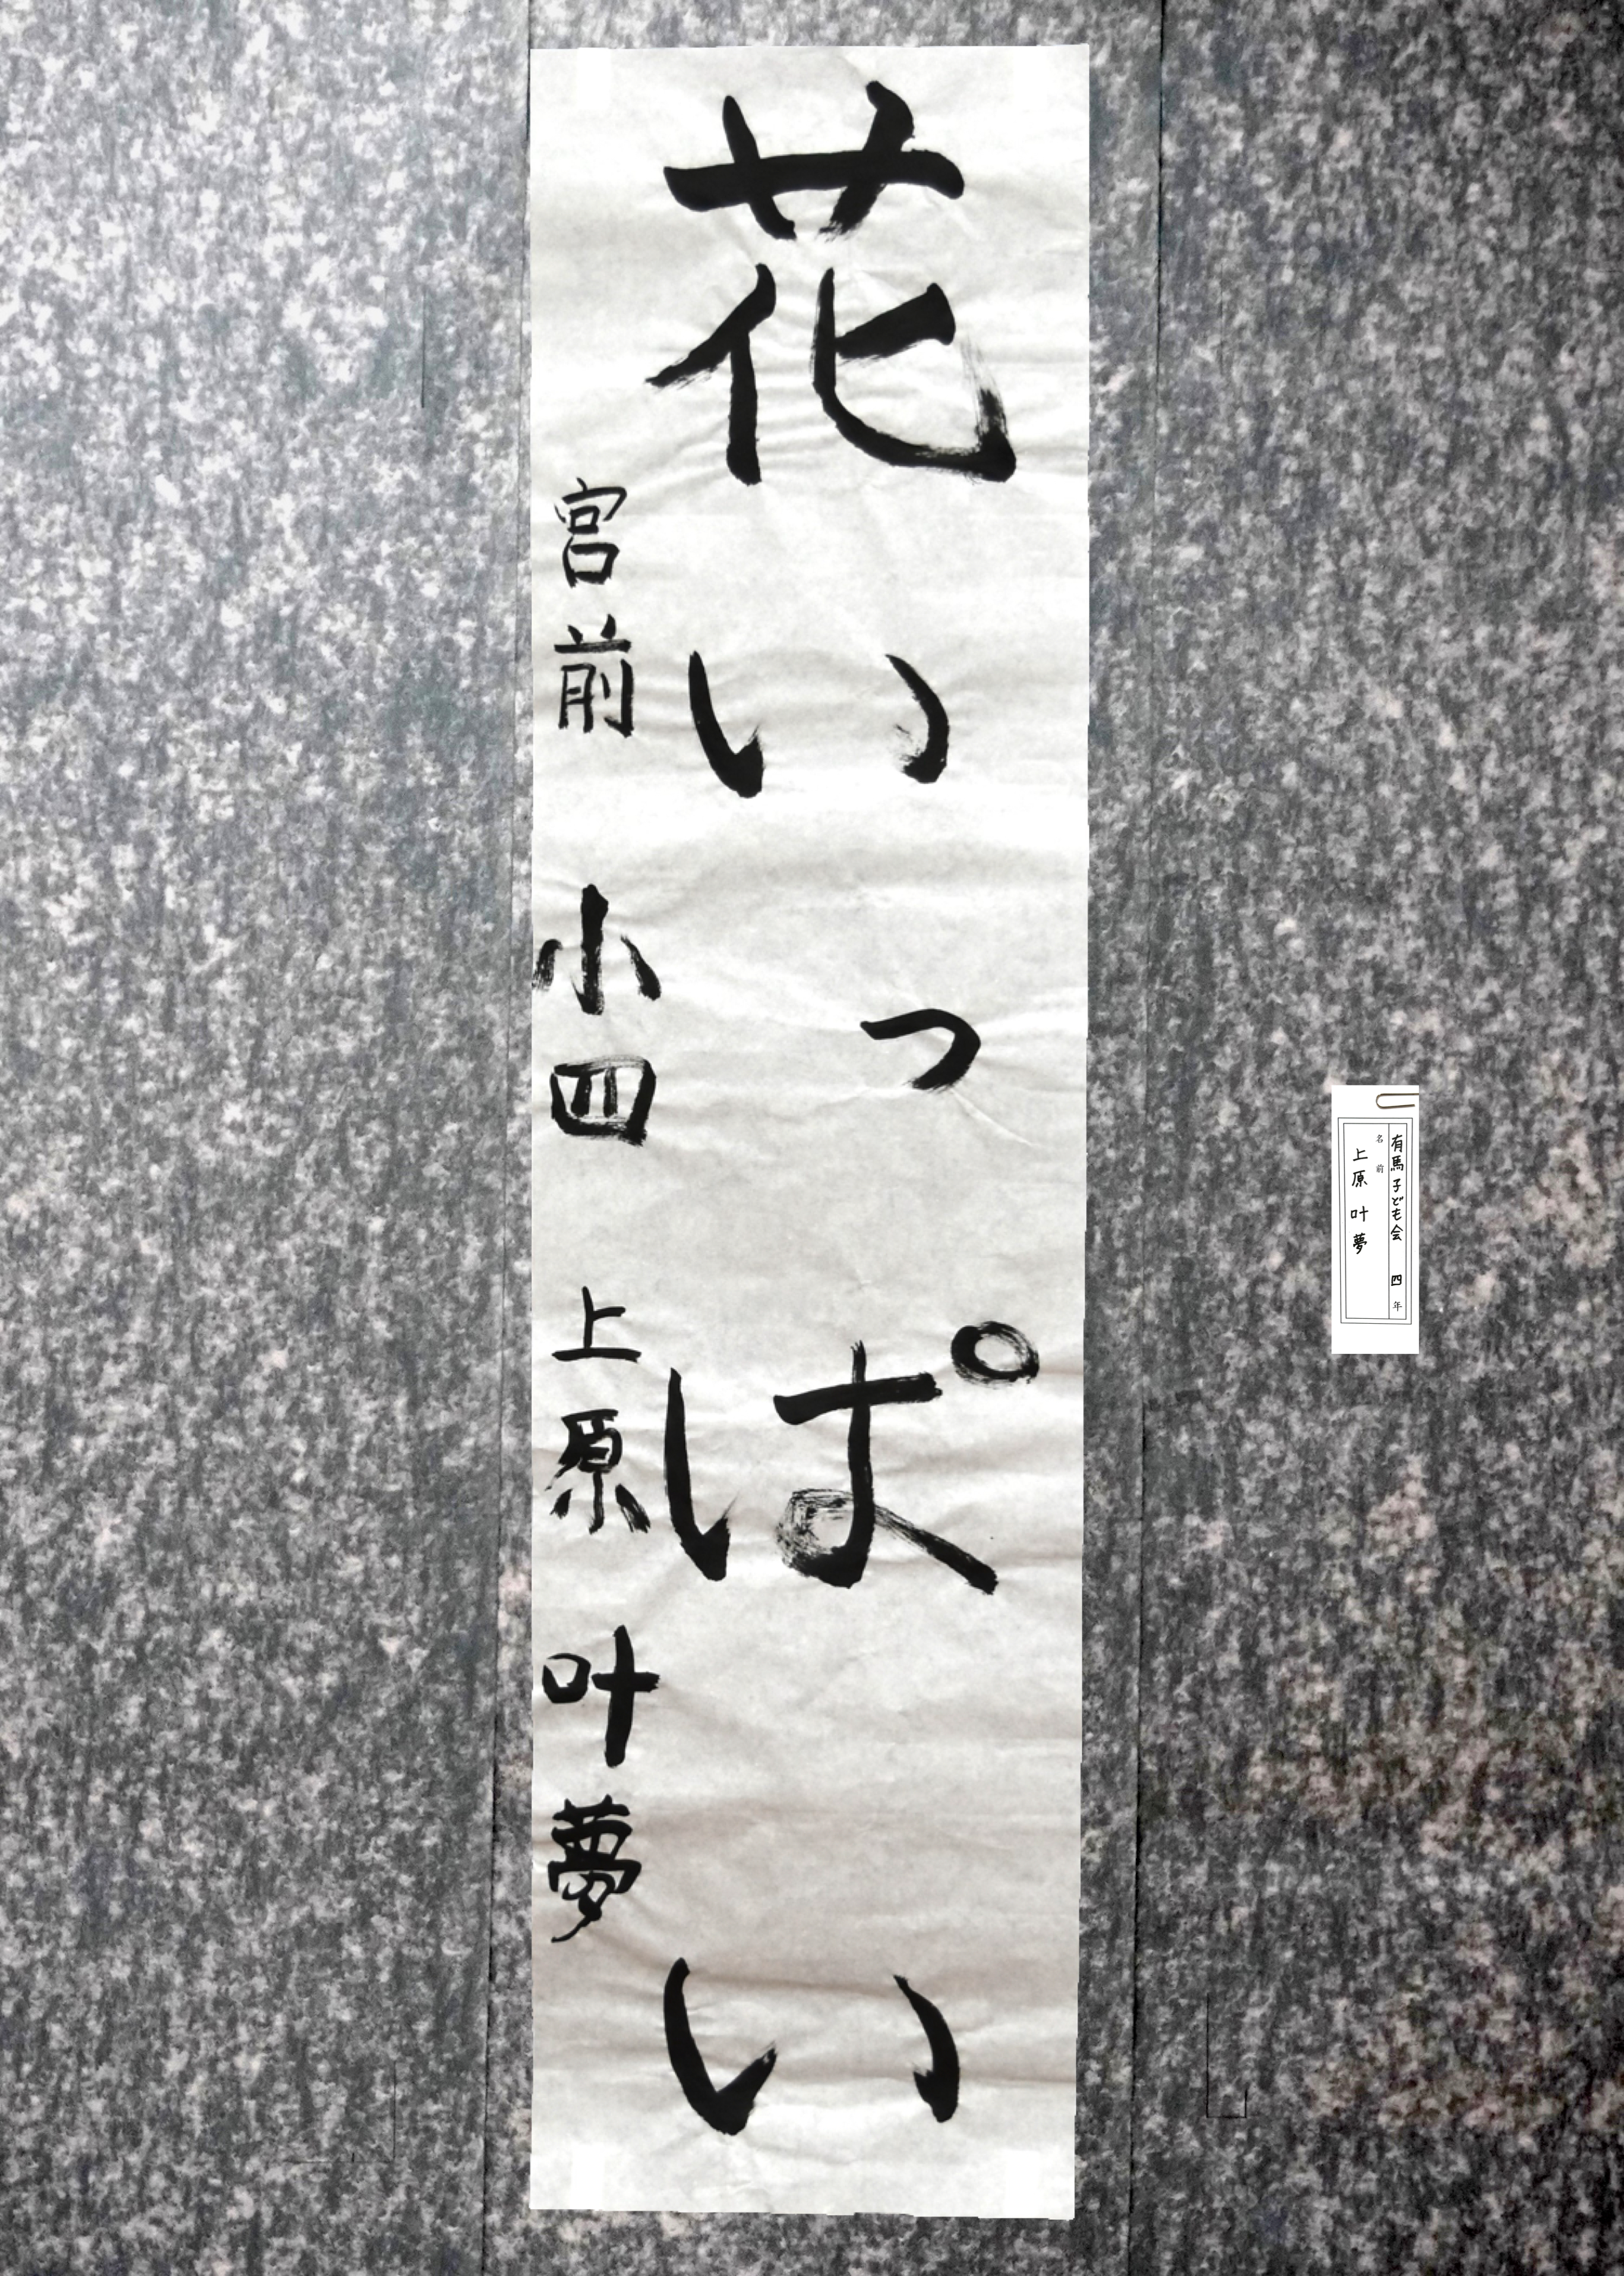 花いっぱい
宮前小四 上原叶夢
有馬子ども会 四年
名前
上原 叶夢